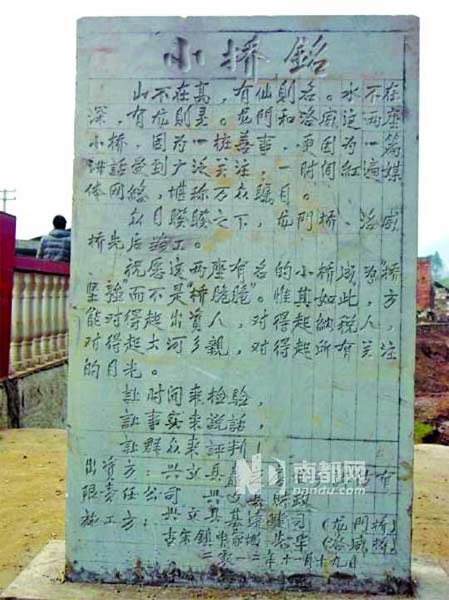 小桥铭
山不在高，有仙則名。水不在
深，有龙則灵。龙門和洛威这两座
小桥，因为一桩善事，更因为一篇
讲話受到广泛关注，一时间紅遍媒
体网络，堪称万众瞩目。
众目睽睽之下，龙門桥、洛威
桥先后竣工。
祝愿这两座有名的小桥成为"桥
坚強"而不是"桥脆脆"。惟其如此，方
能对得起出資人，对得起納税人，
对得起大河乡親，对得起所有关注
的目光。
讓时间来检驗，
讓事实来說話，
讓群众来評判！
出資方：兴文县 有
限责任公司 兴文县財政
施工方：兴文县 司（龙门桥）
古宋鎮 （洛威桥）
二零一二年十一月十九日
南都网
nandu.com